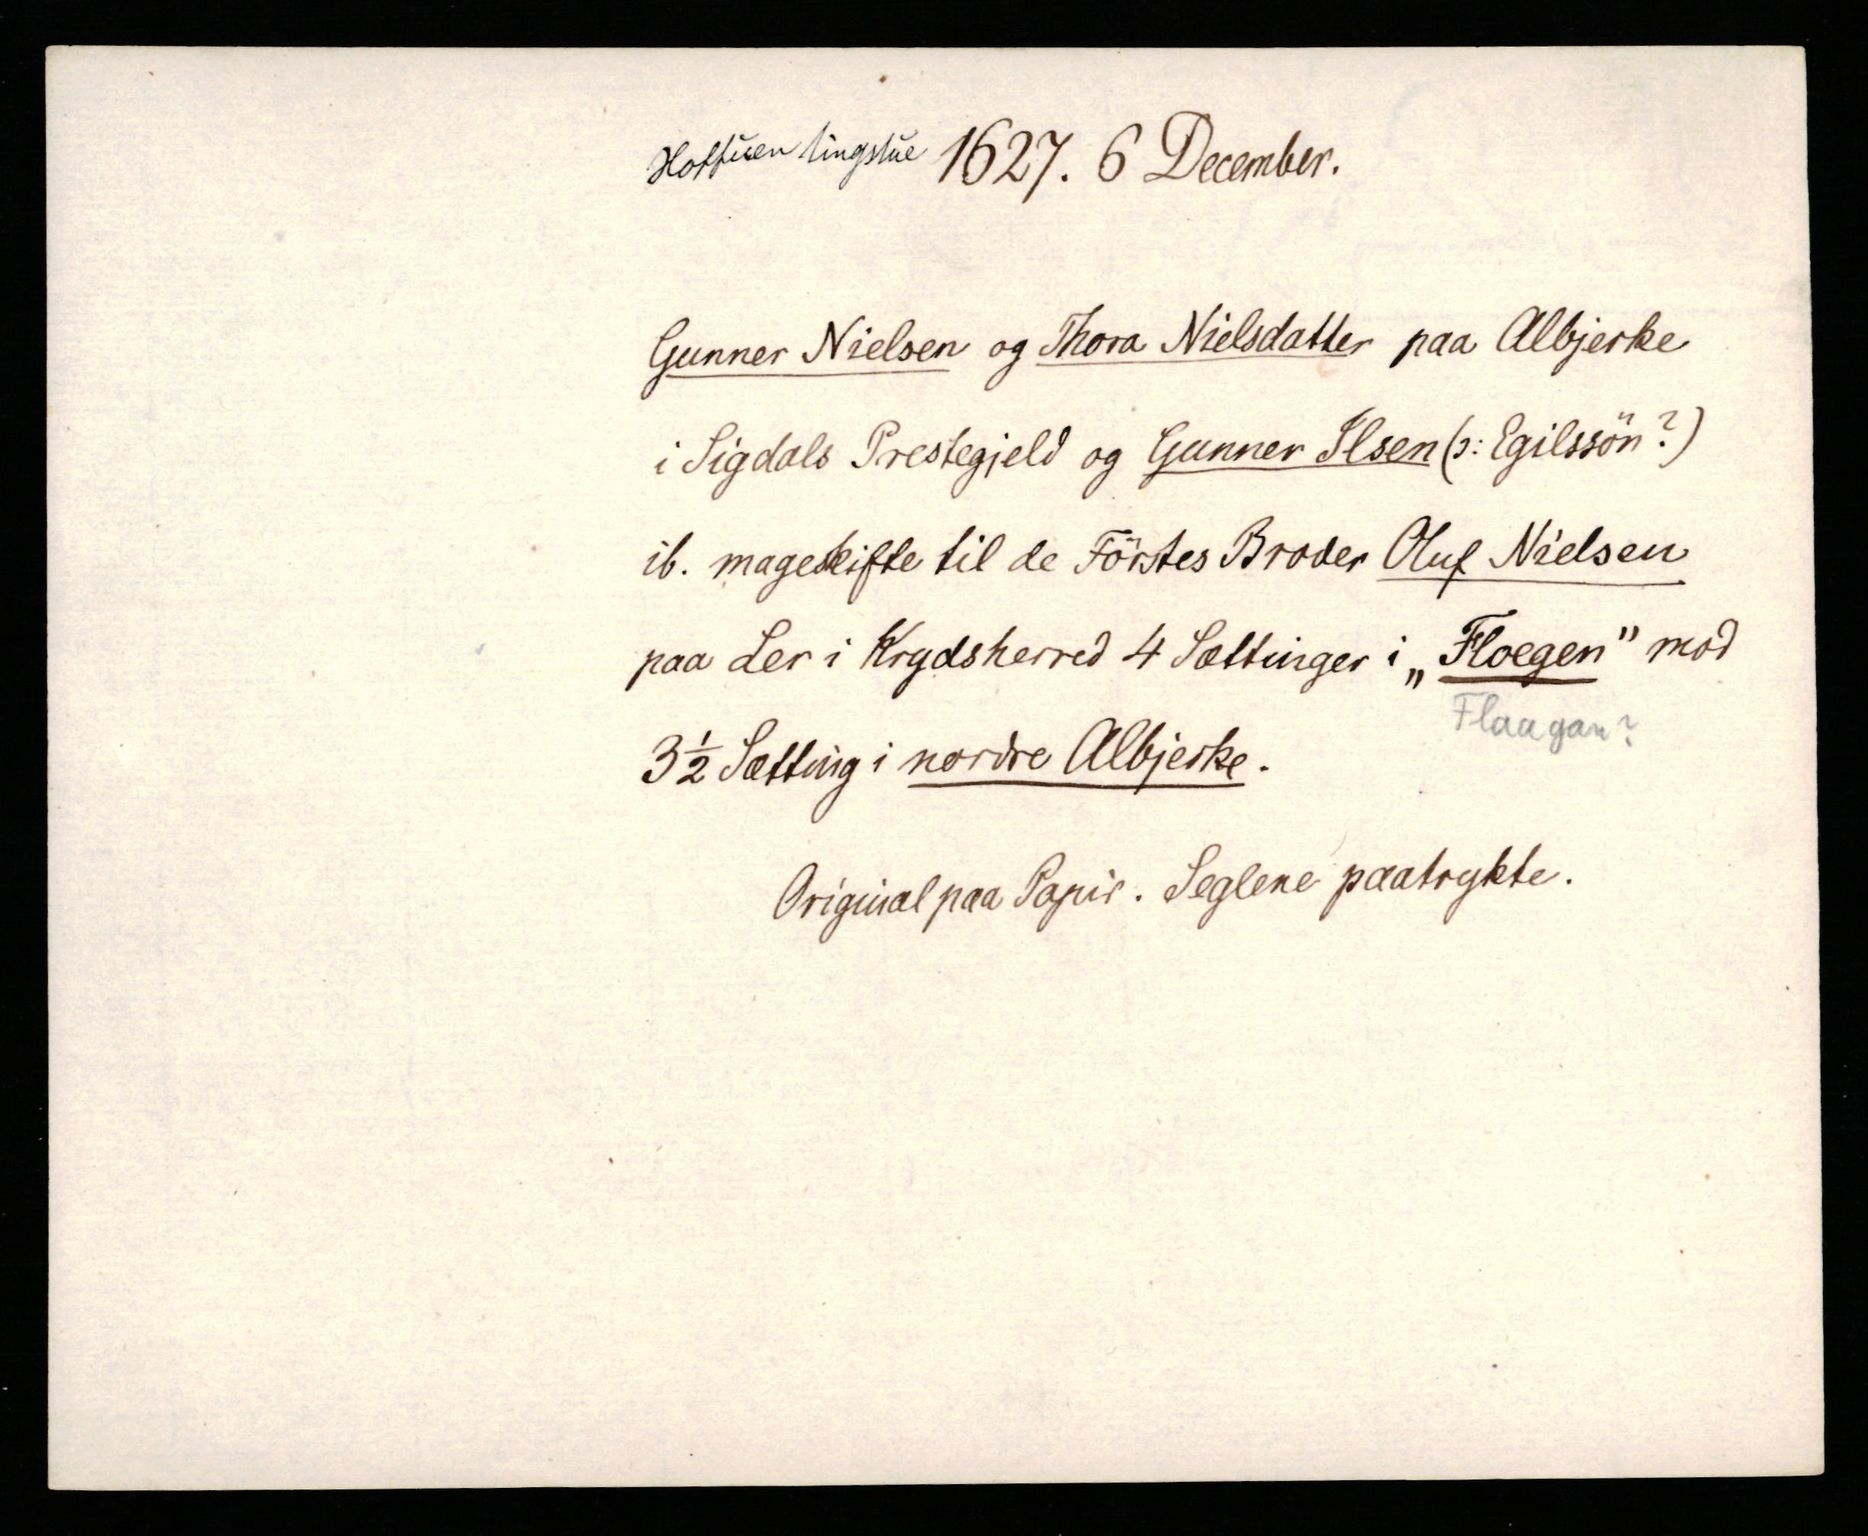 Hoffuen tingstue 1627. 6 December.
Gunner Nielsen og Thora Nielsdatter paa Albjerke
i Sigdals Prestegjeld og Gunner Ilsen (ɔ: Egilssön?)
ib. mageskifte til de Förstes Broder Oluf Nielsen
paa Ler i Krydsherred 4 Sættinger i „Floegen" mod
Flaagan?
3 1/2 Sætting i nordre Albjerke.
Original paa Papir. Seglene paatrykte.